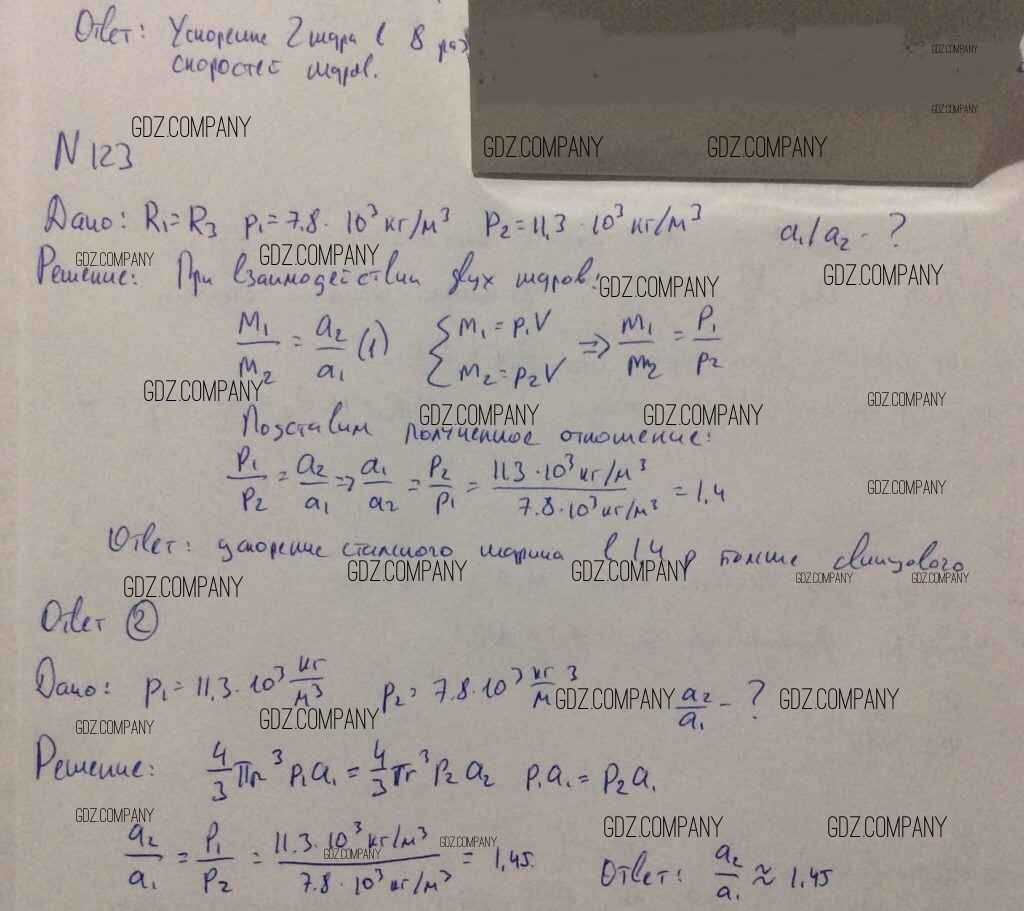 Ответ: Ускорение 2 шара в 8 раз
скоростей шаров.
GDZ.COMPANY
GDZ.COMPANY
GDZ.COMPANY
GDZ.COMPANY
GDZ.COMPANY
N 123
Дано: R₁=R₃ ρ₁=7.8·10³ кг/м³ ρ₂=11,3·10³ кг/м³ a₁/a₂ - ?
GDZ.COMPANY
GDZ.COMPANY
GDZ.COMPANY
GDZ.COMPANY
Решение: При взаимодействии двух шаров:
M₁/M₂ = a₂/a₁ (1) { M₁=ρ₁V M₂=ρ₂V => M₁/M₂ = ρ₁/ρ₂
GDZ.COMPANY
GDZ.COMPANY
GDZ.COMPANY
GDZ.COMPANY
Подставим полученное отношение:
ρ₁/ρ₂ = a₂/a₁ => a₁/a₂ = ρ₂/ρ₁ = 11.3·10³ кг/м³ / 7.8·10³ кг/м³ = 1,4
GDZ.COMPANY
Ответ: ускорение стального шарика в 1,4 р больше свинцового
GDZ.COMPANY
GDZ.COMPANY
GDZ.COMPANY
GDZ.COMPANY
GDZ.COMPANY
Ответ ②
Дано: ρ₁=11,3·10³ кг/м³ ρ₂=7.8·10³ кг/м³ a₂/a₁ - ?
GDZ.COMPANY
GDZ.COMPANY
GDZ.COMPANY
GDZ.COMPANY
Решение: 4/3 πr³ρ₁a₁ = 4/3 πr³ρ₂a₂ ρ₁a₁=ρ₂a₁
GDZ.COMPANY
GDZ.COMPANY
GDZ.COMPANY
GDZ.COMPANY
GDZ.COMPANY
a₂/a₁ = ρ₁/ρ₂ = 11.3·10³ кг/м³ / 7.8·10³ кг/м³ = 1,45. Ответ: a₂/a₁ ≈ 1.45